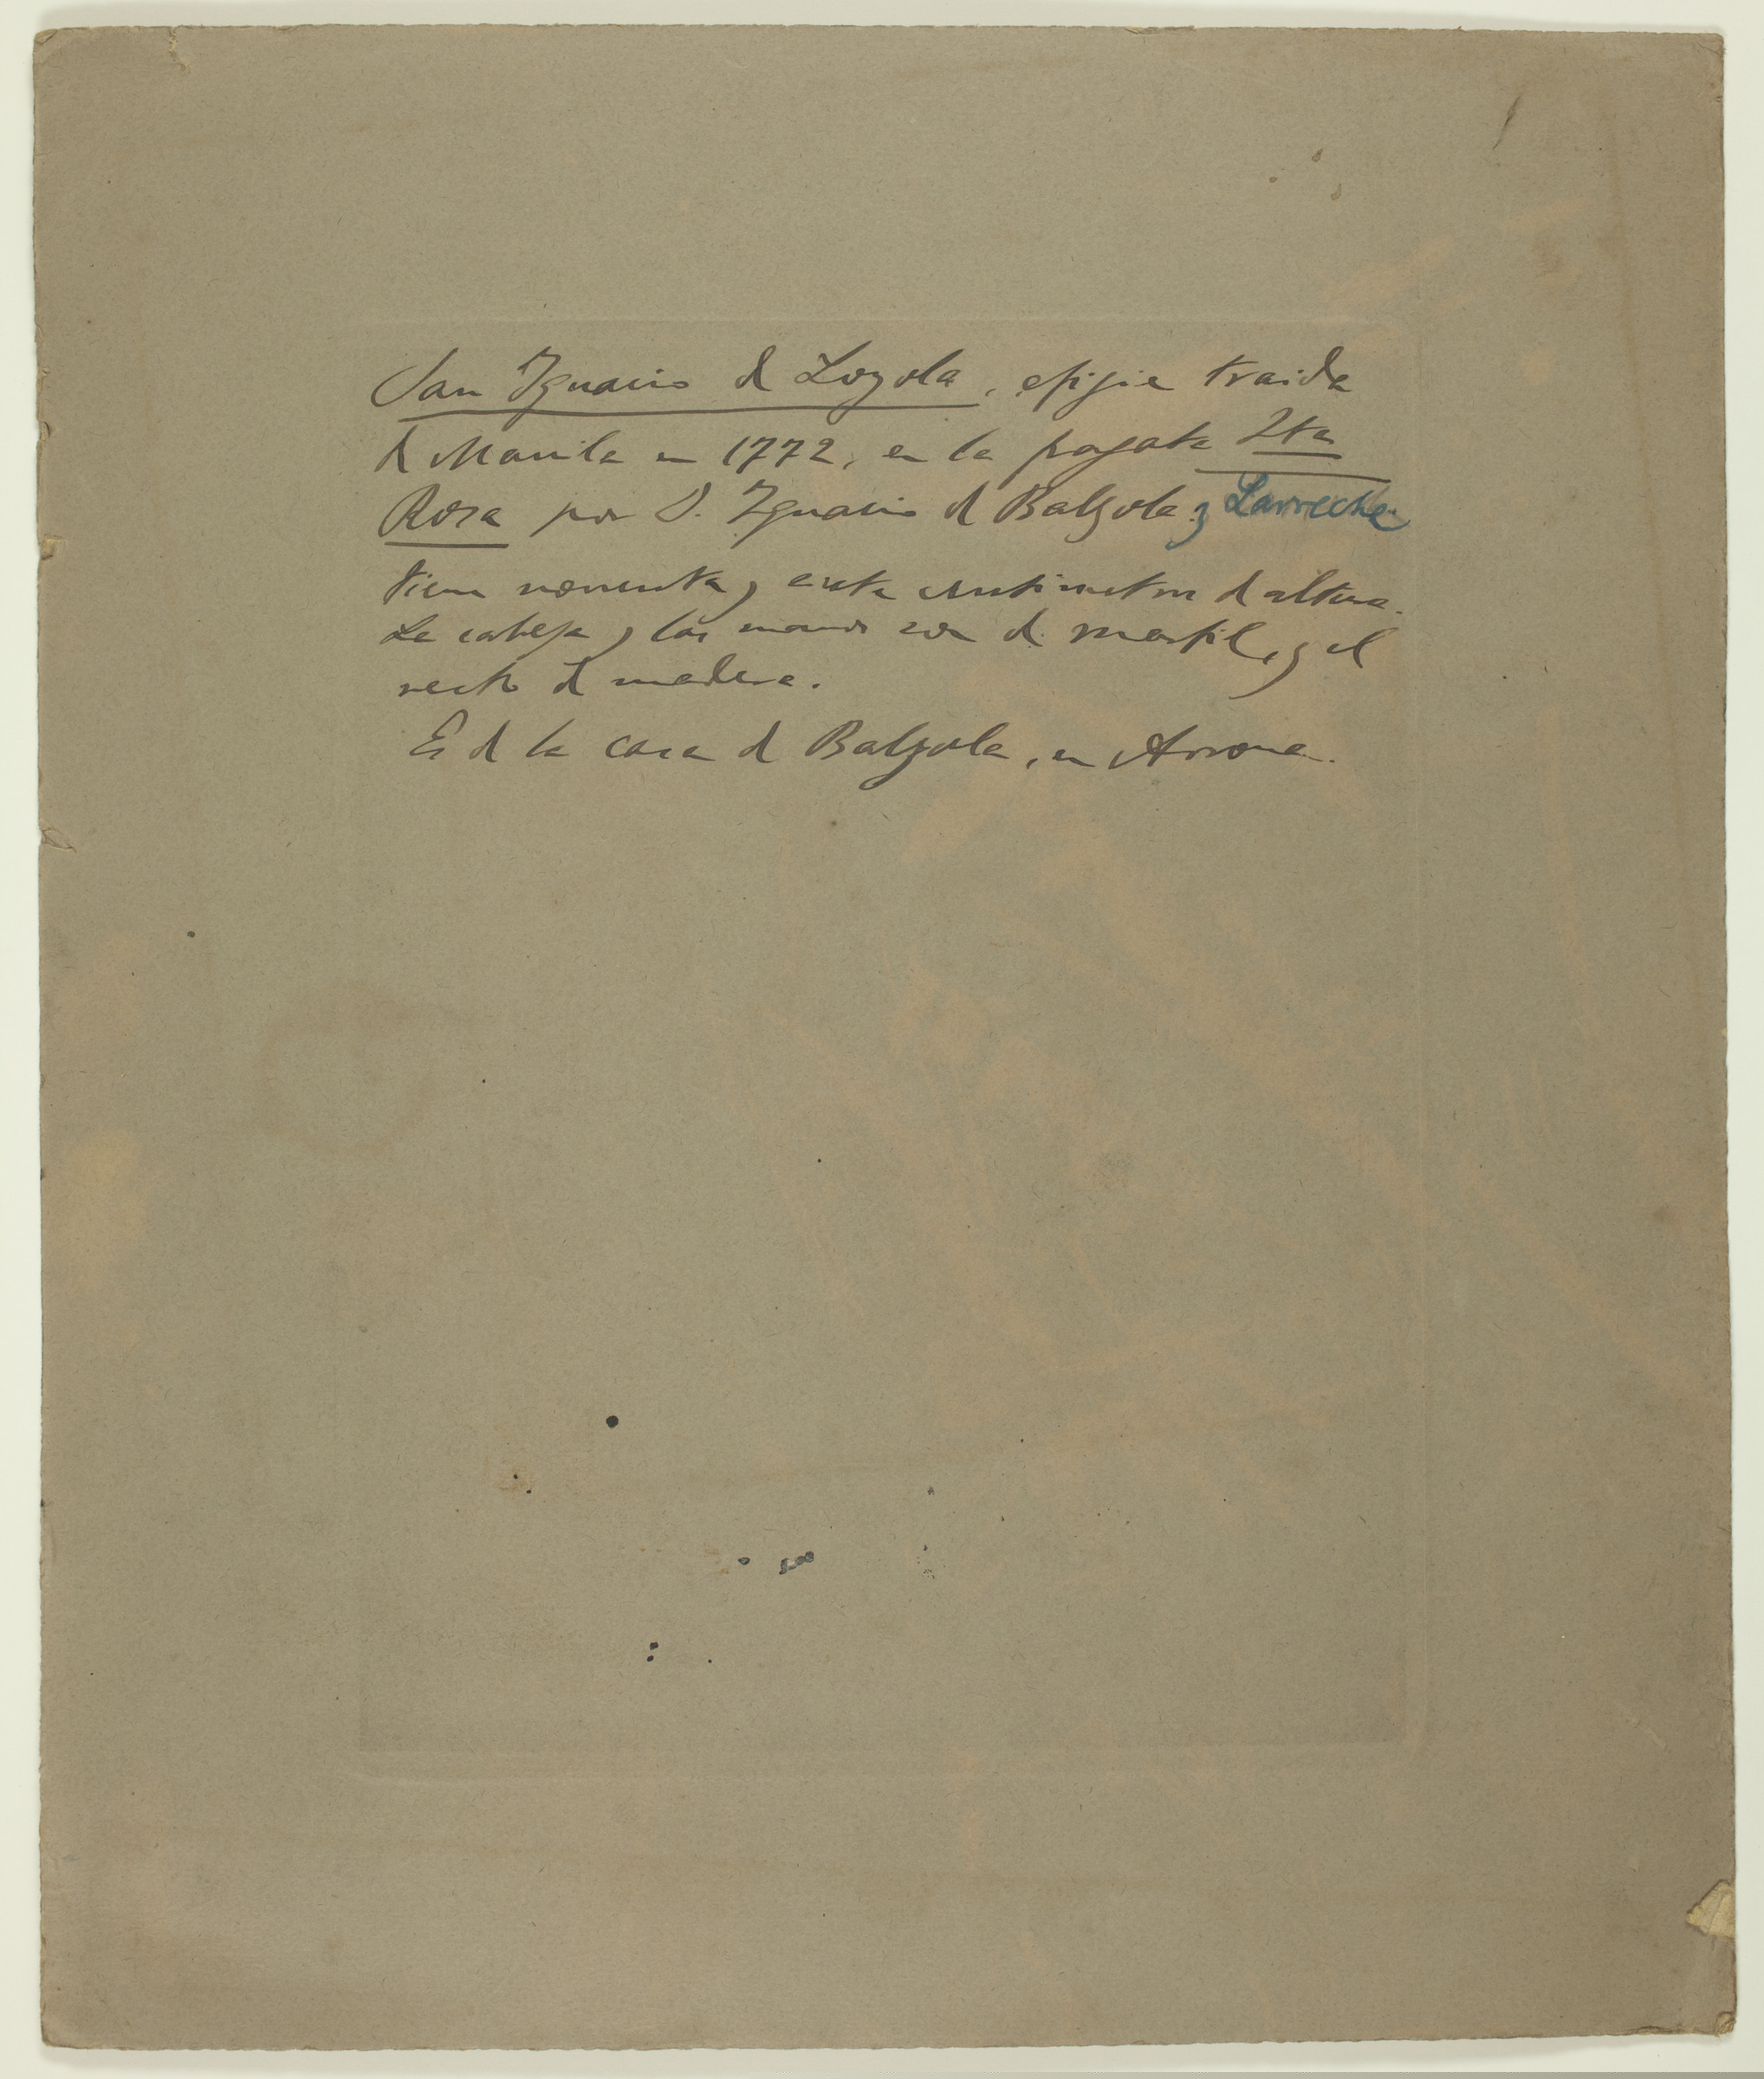 San Ignacio de Loyola, efigie traida
de Manila en 1772, en la fragata Sta
Rosa por D. Ignacio de Balzola y Larreche
Tiene noventa y centimetros de altura.
La cabeza y las manos son de marfil, y el
resto de madera.
Es de la casa de Balzola, en Arrona.